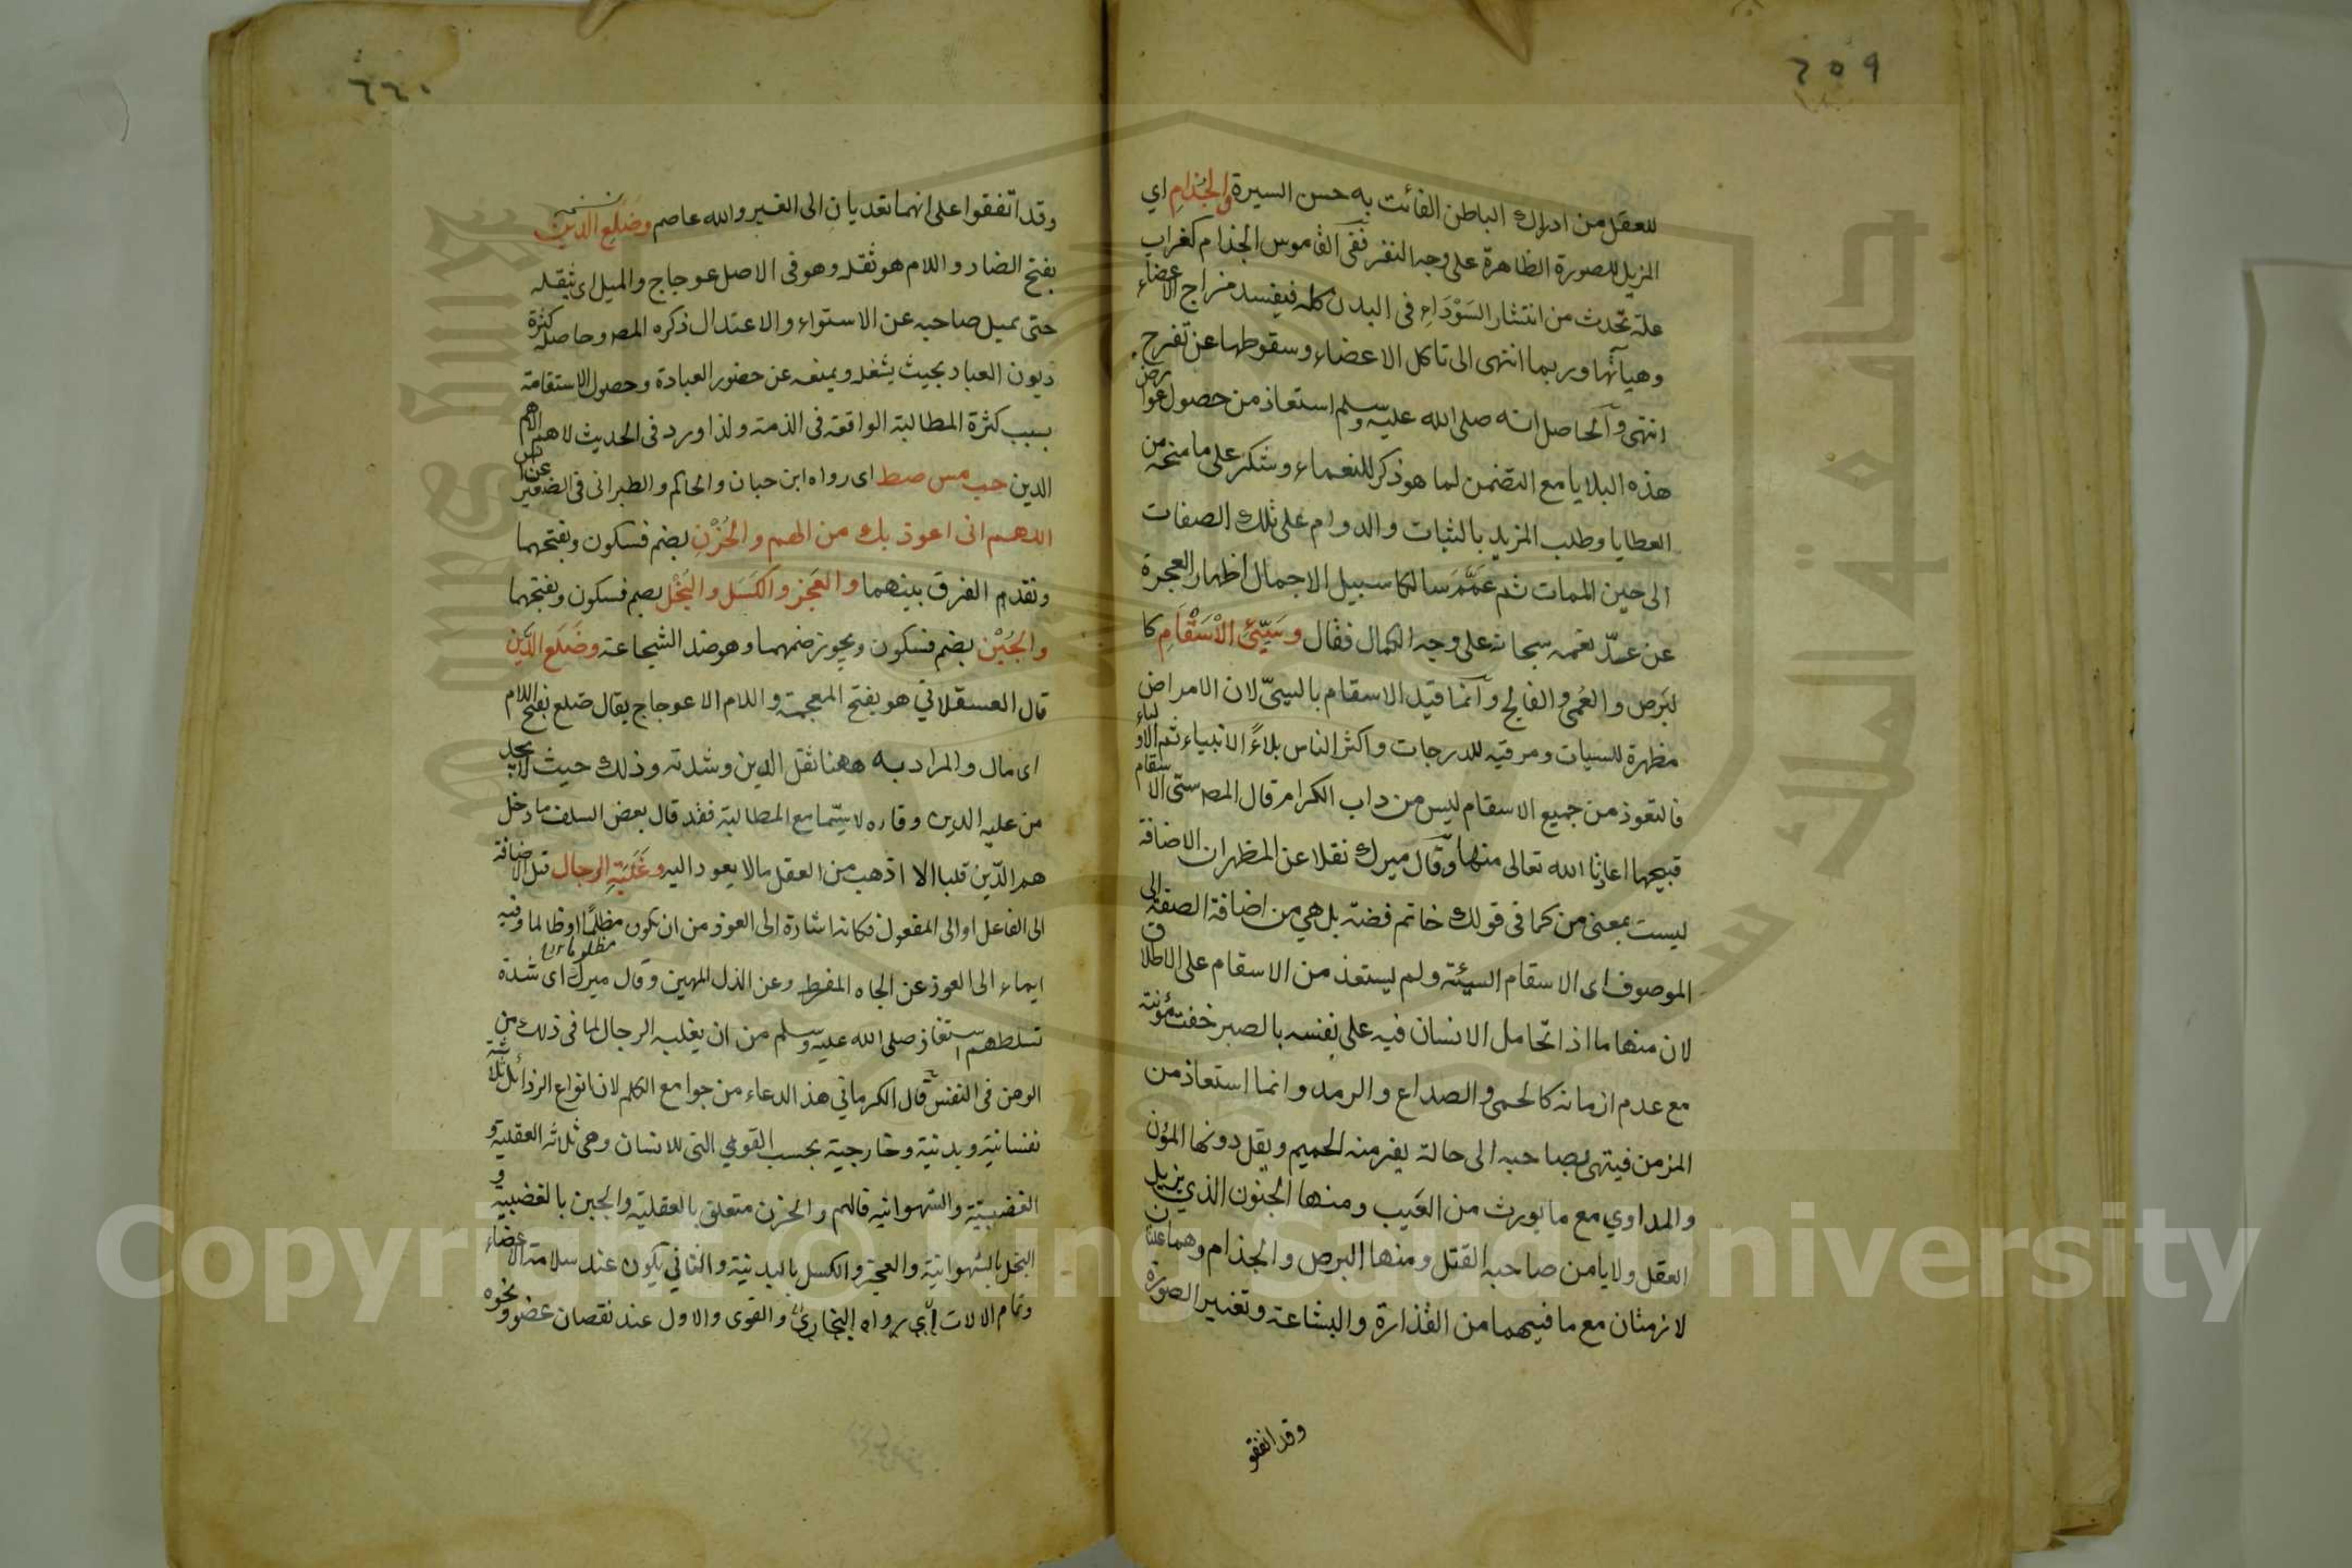 ٦٥٩
للعقل من ادراك الباطن الفائت به حسن السيرة والجُذامِ اي
المزيل للصورة الظاهرة على وجه النفر ففى القاموس الجذام كغراب
علة تحدث من انتشار السَوْدَاءِ فى البدن كله فيفسد مزاج الاعضاء
وهيآتها وربما انتهى الى تاكل الاعضاء وسقوطها عن تقرح
انتهى والحاصل انه صلى الله عليه وسلم استعاذ من حصول عوارض
هذه البلايا مع التضمن لما هو ذكر للنعماء وشكر على ما منحه من
العطايا وطلب المزيد بالثبات والدوام على تلك الصفات
الى حين الممات ثم عَمَّمَ سالكا سبيل الاجمال اظهار العجزة
عن عدّ نعمه سبحانه على وجه الكمال فقال وسَيّئِ الاَسْقَامِ كا
لبَرَص والعُمى والفالج وانما قيد الاسقام بالسيئ لان الامراض
مطهرة للسيات ومرقيه للدرجات واكثر الناس بلاءً الانبياء ثم الاولياء
فالتعوذ من جميع الاسقام ليس من داب الكرام قال المص سيئ الاسقام
قبيحها اعاذنا الله تعالى منها وقال ميرك نقلا عن المظهر ان الاضافة
ليست بمعنى من كما فى قولك خاتم فضة بل هي من اضافة الصفة الى
الموصوف اى الاسقام السيئة ولم يستعذ من الاسقام على الاطلاق
لان منها ما اذا تحامل الانسان فيه على نفسه بالصبر خفت مؤنته
مع عدم ازمانه كالحمى والصداع والرمد وانما استعاذ من
المزمن فينتهى بصاحبه الى حالة يفر منه الحميم ويقل دونها المؤن
والمداوي مع ما يورث من العَيب ومنها الجنون الذي يزيل
العقل ولا يا من صاحبه القتل ومنها البرص والجذام وهما علتان
لا زمتان مع ما فيهما من القذارة والبشاعة وتغيير الصورة
وقد اتفقو
٦٦٠
وقد اتّفقوا على انهما تعديان الى الغير والله عاصم وضَلَعِ الدَّين
بفتح الضاد واللام هو ثقله وهو فى الاصل عوجاج والميل اى يثقله
حتى يميل صاحبه عن الاستواء والاعتدال ذكره المص وحاصله كثرة
ديون العباد بحيث يشغله ويمنعه عن حضور العبادة وحصول الاستقامة
بسبب كثرة المطالبة الواقعة فى الذمة ولذا ورد فى الحديث لا هم الا هم
الدين حب مس صط اى رواه ابن حبان والحاكم والطبرانى فى الصغير عن انس
اللهم انى اعوذ بك من الهم والحُزْنِ بضم فسكون وبفتحهما
وتقدم الفرق بينهما والعَجز والكَسَل والبُخْل بضم فسكون وبفتحهما
والجُبْنِ بضم فسكون ويجوز ضمهما وهو ضد الشجاعة وضَلَعِ الدَّين
قال العسقلاني هو بفتح المعجمة واللام الاعوجاج يقال ضلع بفتح اللام
اى مال والمراد به ههنا ثقل الدين وشدته وذلك حيث لا يجد
من عليه الدين وفاره لا سيّما مع المطالبة فقد قال بعض السلف ما دخل
هم الدّين قلبا الا اذهب من العقل مالا يعود اليه وغَلَبَةِ الرجال قيل الاضافة
الى الفاعل او الى المفعول فكانه اشارة الى العوذ من ان يكون مظلمًا او ظالما وفيه
مظلوما
ايماء الى العوذ عن الجاه المفرط وعن الذل المهين وقال ميرك اى شدة
تسلطهم استعاذ صلى الله عليه وسلم من ان يغلبه الرجال لما فى ذلك من
الوهن فى النفس قال الكرماني هذ الدعاء من جوامع الكلم لان انواع الرذائل ثلاثة
نفسانية وبدنية وخارجية بحسب القوى التى للانسان وهى ثلاثه العقلية و
الغضبيّة والشهوانيه فالهم والحزن متعلق بالعقلية والجبن بالغضبية و
البخل بالشهوانية والعجز والكسل بالبدنية والثاني يكون عند سلامة الاعضاء
وتمام الالات اى رواه البخارى والقوى والاول عند نقصان عضو ونحوه
Copyright © King Saud University
جامعة الملك سعود